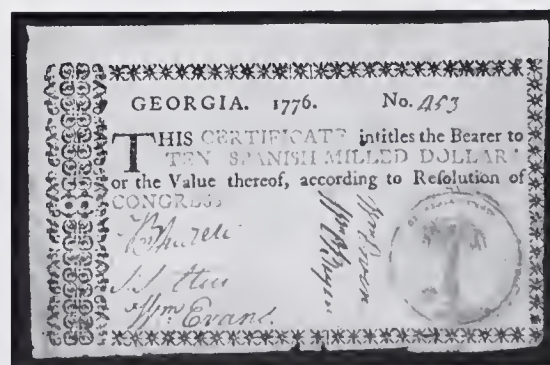 GEORGIA. 1776. No. 453
THIS CERTIFICATE intitles the Bearer to
TEN SPANISH MILLED DOLLARS
or the Value thereof, according to Resolution of
CONGRESS
Wm Evans.